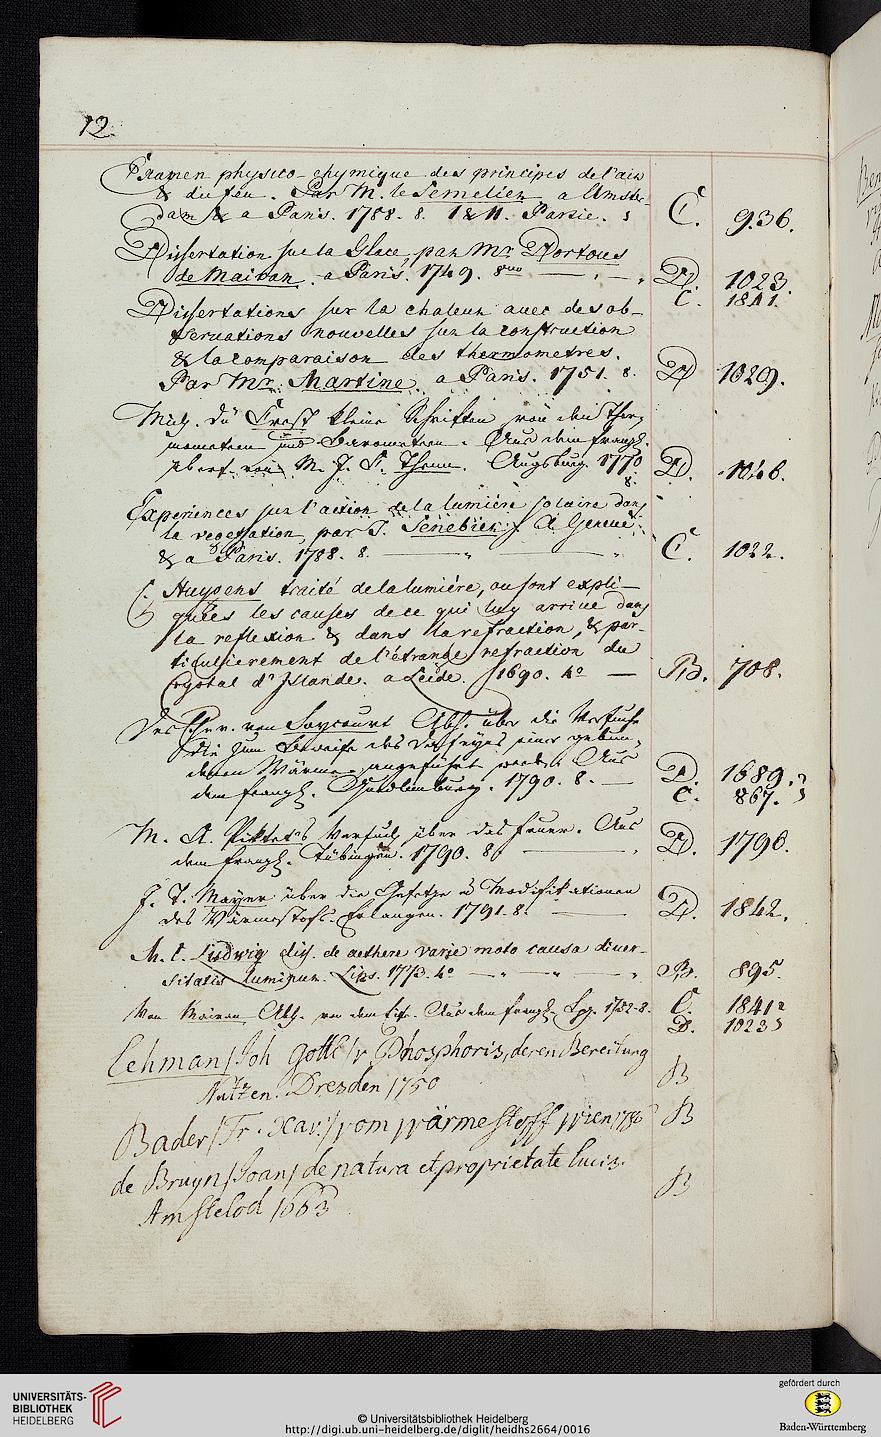 12.
Examen physico-chymique des principes de l'air
& du feu. Par M. le Semelier a Amster-
dam & a Paris. 1788. 8. I & II. Partie. C. 936.
Dissertation sur la Glace, par Mr. Dortous
de Mairan. a Paris. 1749. 8vo — D. 1023.
C. 1841.
Dissertations sur la chaleur avec des ob-
servations nouvelles sur la construction
& la comparaison des thermometres.
Par Mr. Martine. a Paris. 1751. 8. D 1029.
Mich. du Crest kleine Schriften von den Ther-
mometern und Barometern. Aus dem franz.
übers. von M. J. C. Thenn. Augsburg. 1770. 8. D. 1046.
Experiences sur l'action de la lumière solaire dans
la vegetation, par J. Senebier. A Geneve
& a Paris. 1788. 8. — C. 1022.
C. Huygens traité de la lumière, ou sont expli-
quées les causes de ce qui luy arrive dans
la reflexion & dans la refraction, & par-
ticulierement de l'étrange refraction du
Crystal d'Islande. a Leide. 1690. 4o — B. 708.
Des Hrn. von Soycourt Abh. über die Versuche
die zum Beweise des Daseyns einer gebun-
denen Wärme angeführt werden. Aus
dem franz. Quedlinburg. 1790. 8. — D. 1689.
C. 867.
M. A. Piktet's Versuch über das Feuer. Aus
dem franz. Tübingen. 1790. 8. — D. 1796.
J. T. Mayer über die Gesetze u Modifikationen
des Wärmestoffs. Erlangen. 1791. 8. — D. 1842.
M. C. Ludwig diss. de aethere varie moto causa diver-
sitatis luminum. Lips. 1773. 4o — B. 895.
Von Mairan Abh. von dem Eise. Aus dem franz. Lpz. 1752. 8. C. 1841
D. 1023
Lehman/Joh Gottl/v Phosphoris, deren Bereitung
Nutzen. Dresden 1750 B
Bader/Fr. Xav:/vom Wärmestoff Wien 1786 B
de Bruyn/Joan/ de natura et proprietate lucis.
Amstelod 1663 B
UNIVERSITÄTS-
BIBLIOTHEK
HEIDELBERG
© Universitätsbibliothek Heidelberg
http://digi.ub.uni-heidelberg.de/diglit/heidhs2664/0016
gefördert durch
Baden-Württemberg